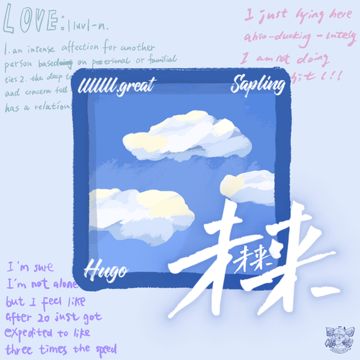 LOVE: |luvl-n.
1. an intense affection for another
person based on personal or familial
ties 2. the deep t
and concern tell
has a relation
I just lying here
abso-ducking-lutely
I am not doing
lllllll.great
Sapling
Hugo
未来
未来
I'm sure
I'm not alone
but I feel like
after 20 just got
expedited to like
three times the speed